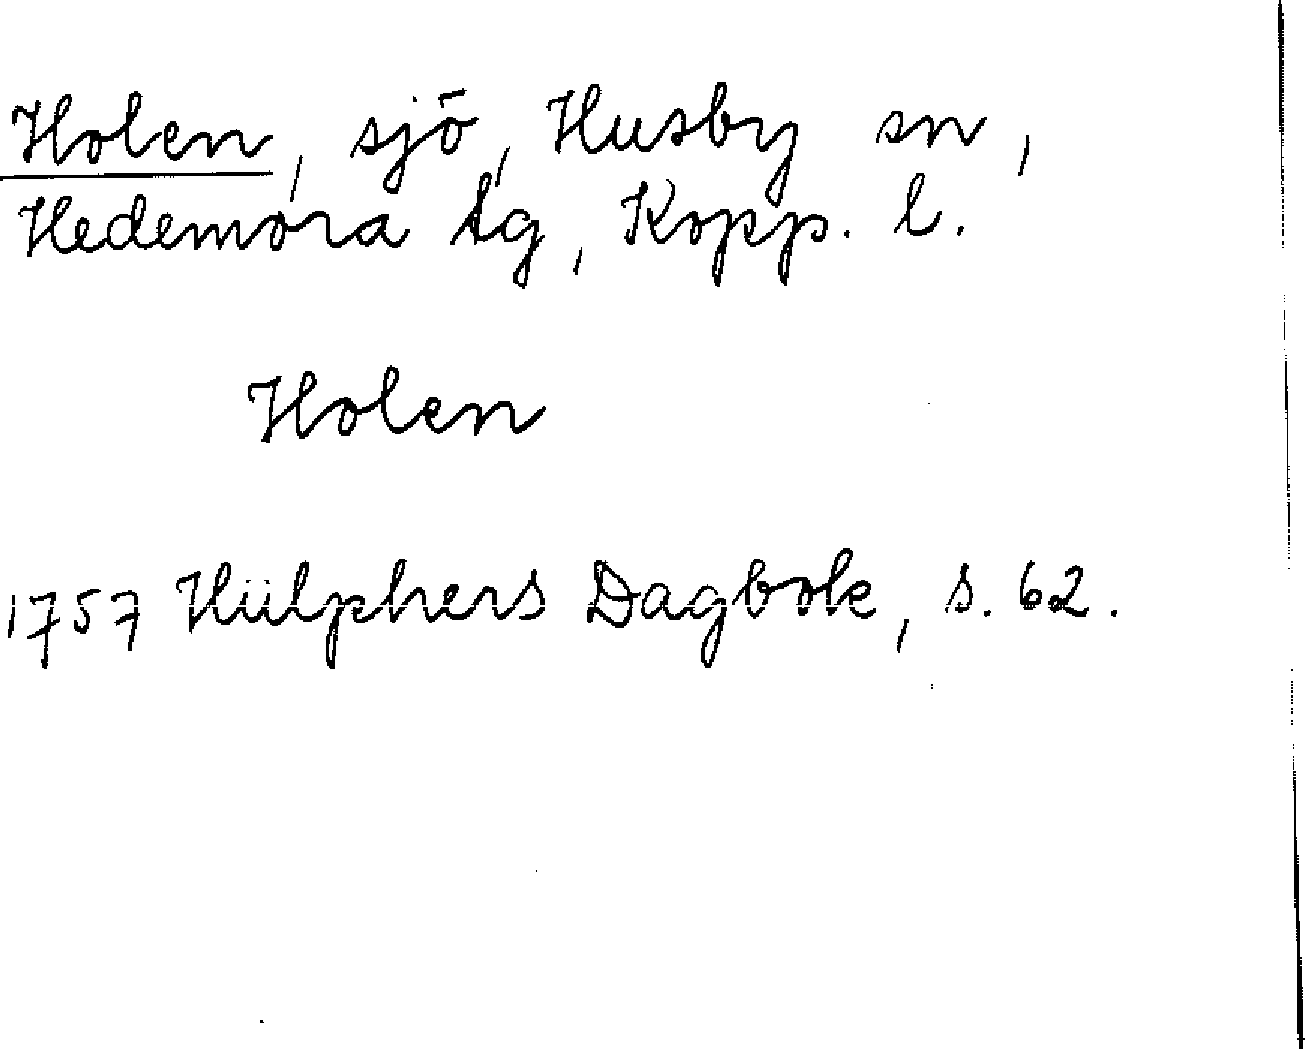 Holen, sjö, Husby sn,
Hedemora tg, Kopp. l.
Holen
1757 Hülphers Dagbok, s. 62.